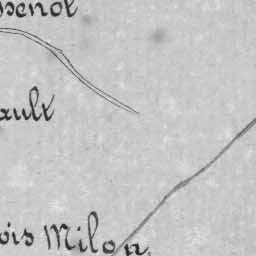 senol
ault
ois Milon,